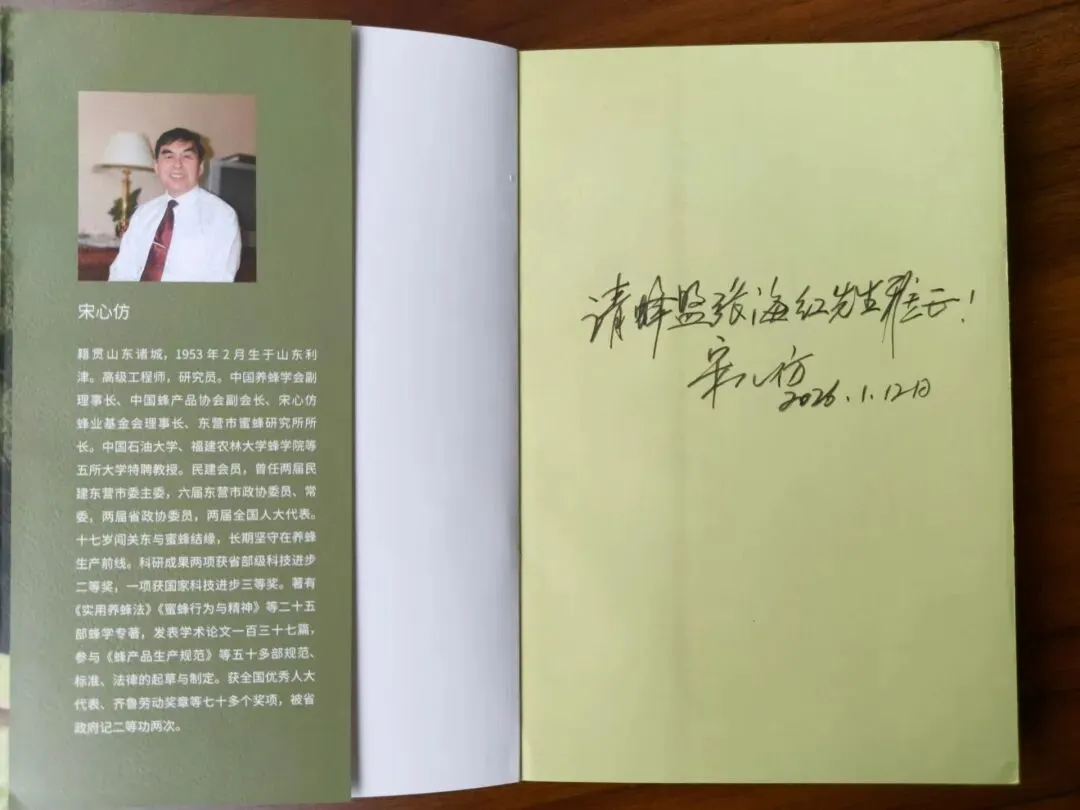 宋心仿
籍贯山东诸城，1953年2月生于山东利
津。高级工程师，研究员。中国养蜂学会副
理事长、中国蜂产品协会副会长、宋心仿
蜂业基金会理事长、东营市蜜蜂研究所所
长。中国石油大学、福建农林大学蜂学院等
五所大学特聘教授。民建会员，曾任两届民
建东营市委主委，六届东营市政协委员、常
委，两届省政协委员，两届全国人大代表。
十七岁闯关东与蜜蜂结缘，长期坚守在养蜂
生产前线。科研成果两项获省部级科技进步
二等奖，一项获国家科技进步三等奖。著有
《实用养蜂法》《蜜蜂行为与精神》等二十五
部蜂学专著，发表学术论文一百三十七篇，
参与《蜂产品生产规范》等五十多部规范、
标准、法律的起草与制定。获全国优秀人大
代表、齐鲁劳动奖章等七十多个奖项，被省
政府记二等功两次。
请蜂盟张海红先生雅正！
宋心仿
2026.1.12日